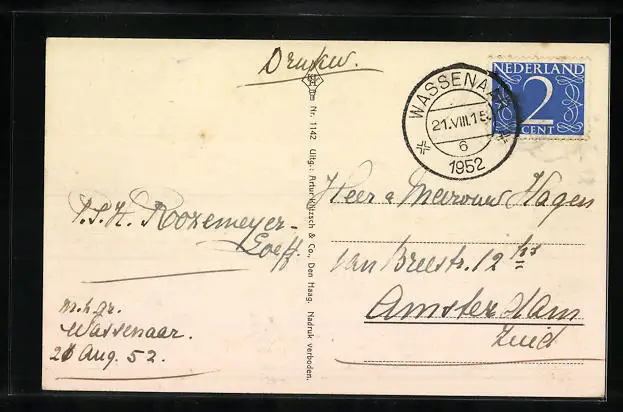 Drukw.
NEDERLAND
2
CENT
WASSENAAR
21.VIII.15
6
1952
Nr. 1142 Uitg.: Artur Klitzsch & Co., Den Haag. Nadruk verboden.
P.S.H. Roozemeyer-
Loeff.
m.h.gr.
Wassenaar.
21 Aug. 52.
Heer & Mevrouw Hagen
van Breestr. 12 hs
Amsterdam
Zuid